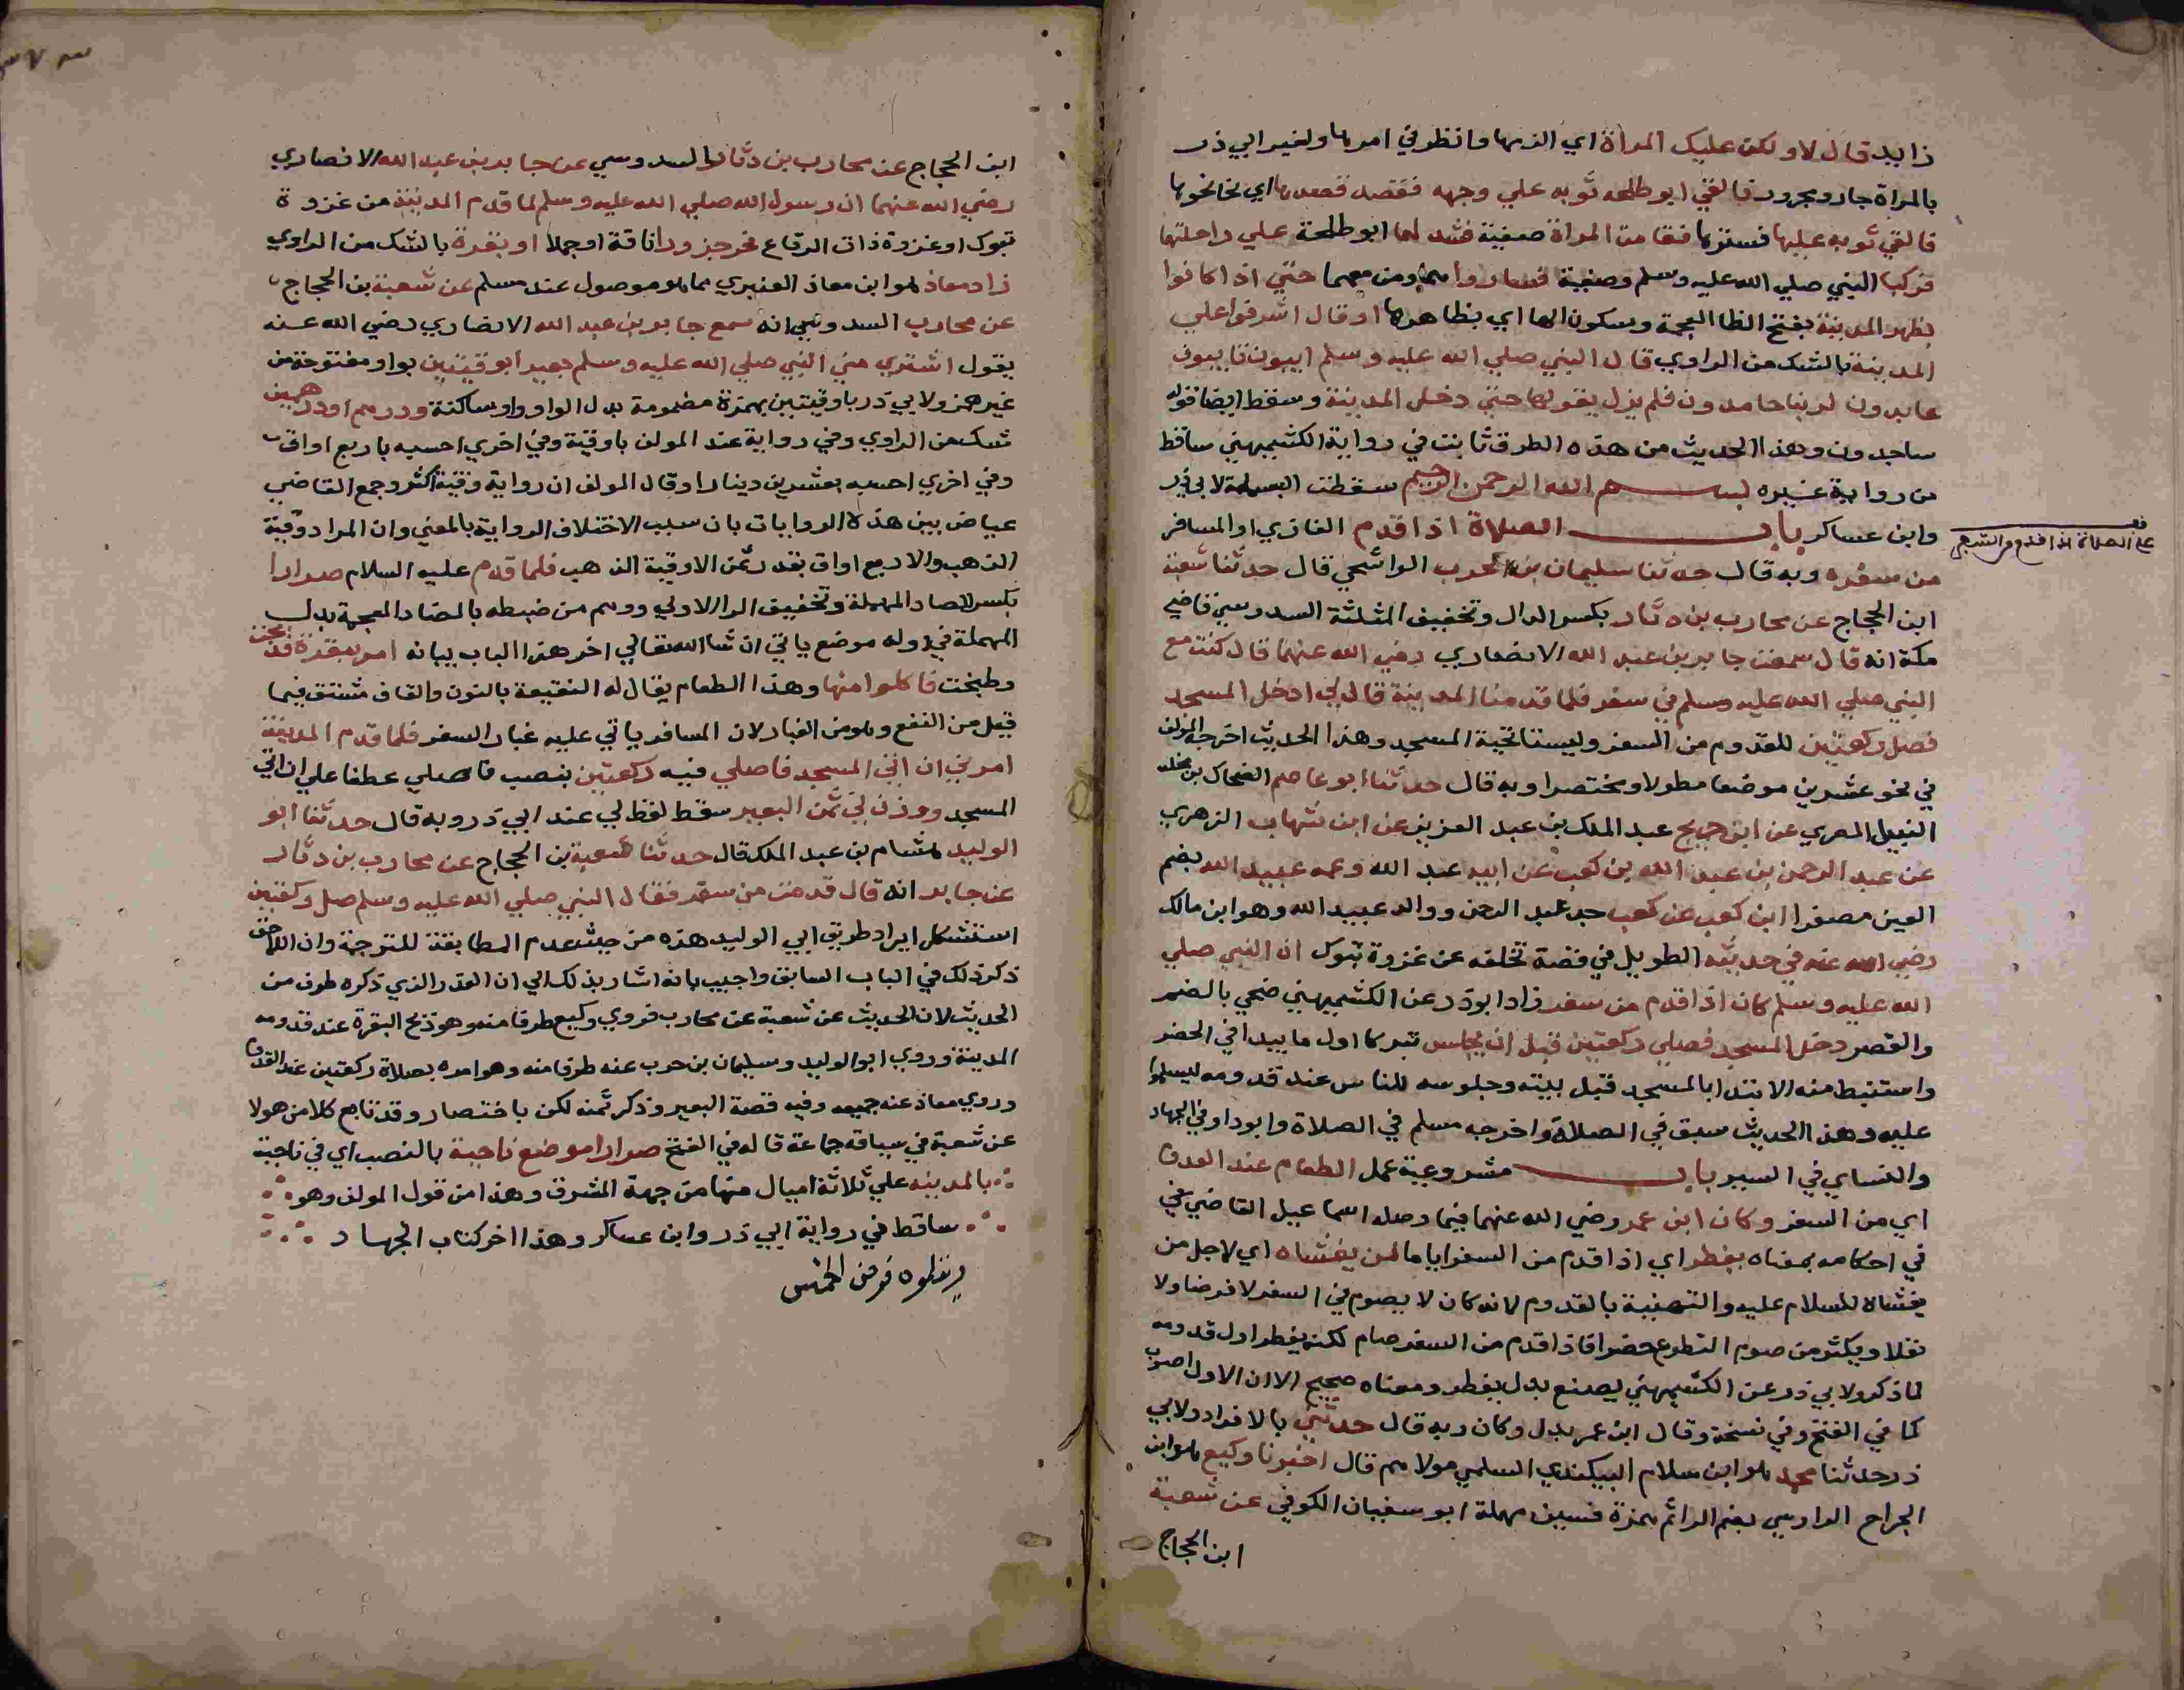 زايد قال لا ولكن عليك المراة اي الزمها وانظر في امرها ولغير ابي ذر
بالمراة جار ومجرور فالقي ابو طلحه ثوبه علي وجهه فقصد قصدها اي نحا نحوها
فالقي ثوبه عليها فسترها فقامت المراة صفية فشد لهما ابو طلحة علي راحلتهما
فركبا النبي صلي الله عليه وسلم وصفية فساروا هما ومن معهما حتي اذا كانوا
بظهر المدينة بفتح الظا المعجمة وسكون الها اي بظاهرها او قال اشرفوا علي
المدينة بالشك من الراوي قال النبي صلي الله عليه وسلم ايبون تايبون
عابدون لربنا حامدون فلم يزل يقولها حتي دخل المدينة وسقط ايضا قوله
ساجدون وهذا الحديث من هذه الطرق ثابت في رواية الكشميهني ساقط
من رواية غيره بسم الله الرحمن الرحيم سقطت البسملة لابي ذر
وابن عساكر باب الصلاة اذا قدم الغازي او المسافر
من سفره وبه قال حدثنا سليمان بن حرب الواشحي قال حدثنا شعبة
ابن الحجاج عن محارب بن دثار بكسر الدال وتخفيف المثلثة السدوسي قاضي
مكة انه قال سمعت جابر بن عبد الله الانصاري رضي الله عنهما قال كنت مع
النبي صلي الله عليه وسلم في سفر فلما قدمنا المدينة قال لي ادخل المسجد
فصل ركعتين للقدوم من السفر وليستا تحية المسجد وهذا الحديث اخرجه المولف
في نحو عشرين موضعا مطولا ومختصرا وبه قال حدثنا ابو عاصم الضحاك بن مخلد
النبيل المصري عن ابن جريج عبد الملك بن عبد العزيز عن ابن شهاب الزهري
عن عبد الرحمن بن عبد الله بن كعب عن ابيه عبد الله وعمه عبيد الله بضم
العين مصغرا ابن كعب عن كعب جد عبد الرحمن ووالد عبيد الله وهو ابن مالك
رضي الله عنه في حديثه الطويل في قصة تخلفه عن غزوة تبوك ان النبي صلي
الله عليه وسلم كان اذا قدم من سفر زاد ابو ذر عن الكشميهني ضحي بالضم
والقصر دخل المسجد فصلي ركعتين قبل ان يجلس تبركا اول ما يبدا في الحضر
واستنبط منه الابتدا بالمسجد قبل بيته وجلوسه للناس عند قدومه ليسلموا
عليه وهذا الحديث سبق في الصلاة واخرجه مسلم في الصلاة وابو داود في الجهاد
والنساي في السير باب مشروعية عمل الطعام عند القدوم
اي من السفر وكان ابن عمر رضي الله عنهما فيما وصله اسماعيل القاضي
في احكامه بمعناه يفطر اي اذا قدم من السفر اياما لمن يغشاه اي لاجل من
يغشاه للسلام عليه والتهنية بالقدوم لانه كان لا يصوم في السفر لا فرضا ولا
نفلا ويكثر من صوم التطوع حضرا فاذا قدم من السفر صام لكنه يفطر اول قدومه
لما ذكر ولابي ذر عن الكشميهني يصنع بدل يفطر ومعناه صحيح الا ان الاول اصوب
كما في الفتح وفي نسخة وقال ابن عمر بدل وكان وبه قال حدثني بالافراد ولابي
ذر حدثنا محمد هو ابن سلام البيكندي السلمي مولاهم قال اخبرنا وكيع هو ابن
الجراح الرواسي بضم الرا ثم همزة فسين مهملة ابو سفيان الكوفي عن شعبة
ابن الحجاج
على الصلاة اذا قدم من السفر
ابن الحجاج عن محارب بن دثار السدوسي عن جابر بن عبد الله الانصاري
رضي الله عنهما ان رسول الله صلي الله عليه وسلم لما قدم المدينة من غزوة
تبوك او غزوة ذات الرقاع نحر جزورا ناقة او جملا او بقرة بالشك من الراوي
زاد معاذ هو ابن معاذ العنبري مما هو موصول عند مسلم عن شعبة بن الحجاج
عن محارب السدوسي انه سمع جابر بن عبد الله الانصاري رضي الله عنه
يقول اشتري مني النبي صلي الله عليه وسلم بعيرا بوقيتين بواو مفتوحة من
غير همز ولابي ذر باوقيتين بهمزة مضمومة بدل الواو واو ساكنة ودرهم او درهمين
شك من الراوي وفي رواية عند المولف باوقية وفي اخري احسبه باربع اواق
وفي اخري احسبه بعشرين دينارا وقال المولف ان رواية وقية اكثر وجمع القاضي
عياض بين هذه الروايات بان سبب الاختلاف الرواية بالمعني وان المراد وقية
الذهب والاربع اواق بقدر ثمن الاوقية الذهب فلما قدم عليه السلام صرارا
بكسر الصاد المهملة وتخفيف الرا الاولي ووهم من ضبطه بالضاد المعجمة بدل
المهملة في اوله موضع ياتي ان شا الله تعالي اخر هذا الباب بيانه امر ببقرة فذبحت
وطبخت فاكلوا منها وهذا الطعام يقال له النقيعة بالنون والقاف مشتق فيما
قيل من النقع وهو من الغبار لان المسافر ياتي عليه غبار السفر فلما قدم المدينة
امرني ان اتي المسجد فاصلي فيه ركعتين بنصب فاصلي عطفا علي ان اتي
المسجد ووزن لي ثمن البعير سقط لفظ لي عند ابي ذر وبه قال حدثنا ابو
الوليد هشام بن عبد الملك قال حدثنا شعبة بن الحجاج عن محارب بن دثار
عن جابر انه قال قدمت من سفر فقال النبي صلي الله عليه وسلم صل ركعتين
استشكل ايراد طريق ابي الوليد هذه من حيث عدم المطابقة للترجمة وان اللاحق
ذكر ذلك في الباب السابق واجيب بانه اشار بذلك الي ان القدر الذي ذكره طرف من
الحديث لان الحديث عن شعبة عن محارب فروي وكيع طرفا منه وهو ذبح البقرة عند قدومه
المدينة وروي ابو الوليد وسليمان بن حرب عنه طرفا منه وهو امره بصلاة ركعتين عند القدوم
وروي معاذ عنه جميعه وفيه قصة البعير وذكر ثمنه لكن باختصار وقد تابع كلا من هولا
عن شعبة في سياقه جماعة قاله في الفتح صرارا موضع ناحية بالنصب اي في ناحية
بالمدينه علي ثلاثة اميال منها من جهة المشرق وهذا من قول المولف وهو
ساقط في رواية ابي ذر وابن عساكر وهذا اخر كتاب الجهاد
ويتلوه فرض الخمس